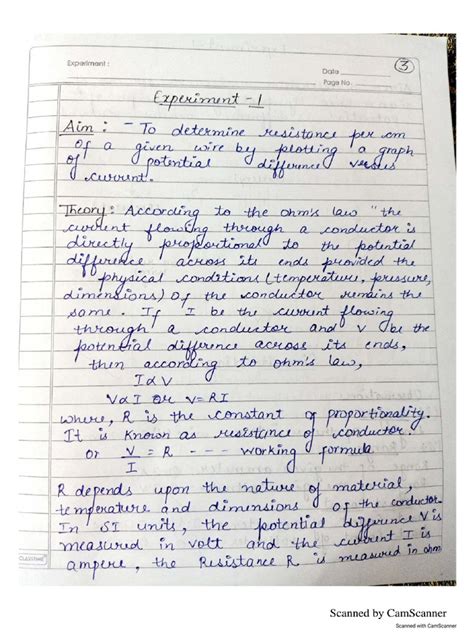 3
Experiment :
Date
Page No.
Experiment - 1
Aim : - To determine resistance per cm
of a given wire by plotting a graph
of potential difference versus
current.
Theory : According to the ohm's law "the
current flowing through a conductor is
directly proportional to the potential
difference across its ends provided the
physical conditions (temperature, pressure,
dimensions) of the conductor remains the
same. If I be the current flowing
through a conductor and V be the
potential difference across its ends,
then according to ohm's law,
I α V
V α I or V = RI
where, R is the constant of proportionality.
It is known as resistance of conductor.
or V/I = R --- working formula
R depends upon the nature of material,
temperature and dimensions of the conductor.
In SI units, the potential difference V is
measured in volt and the current I is
ampere, the Resistance R is measured in ohm
Scanned by CamScanner
Scanned with CamScanner